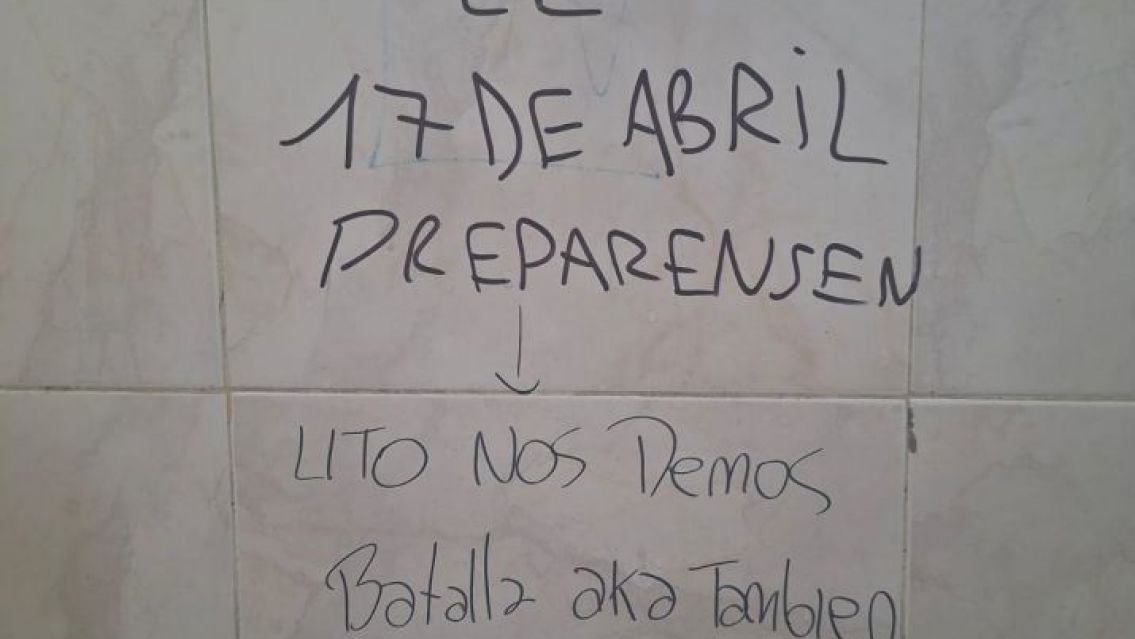 17 DE ABRiL
PREPARENSEN
LITO NOS Demos
Batalla aka Tambien